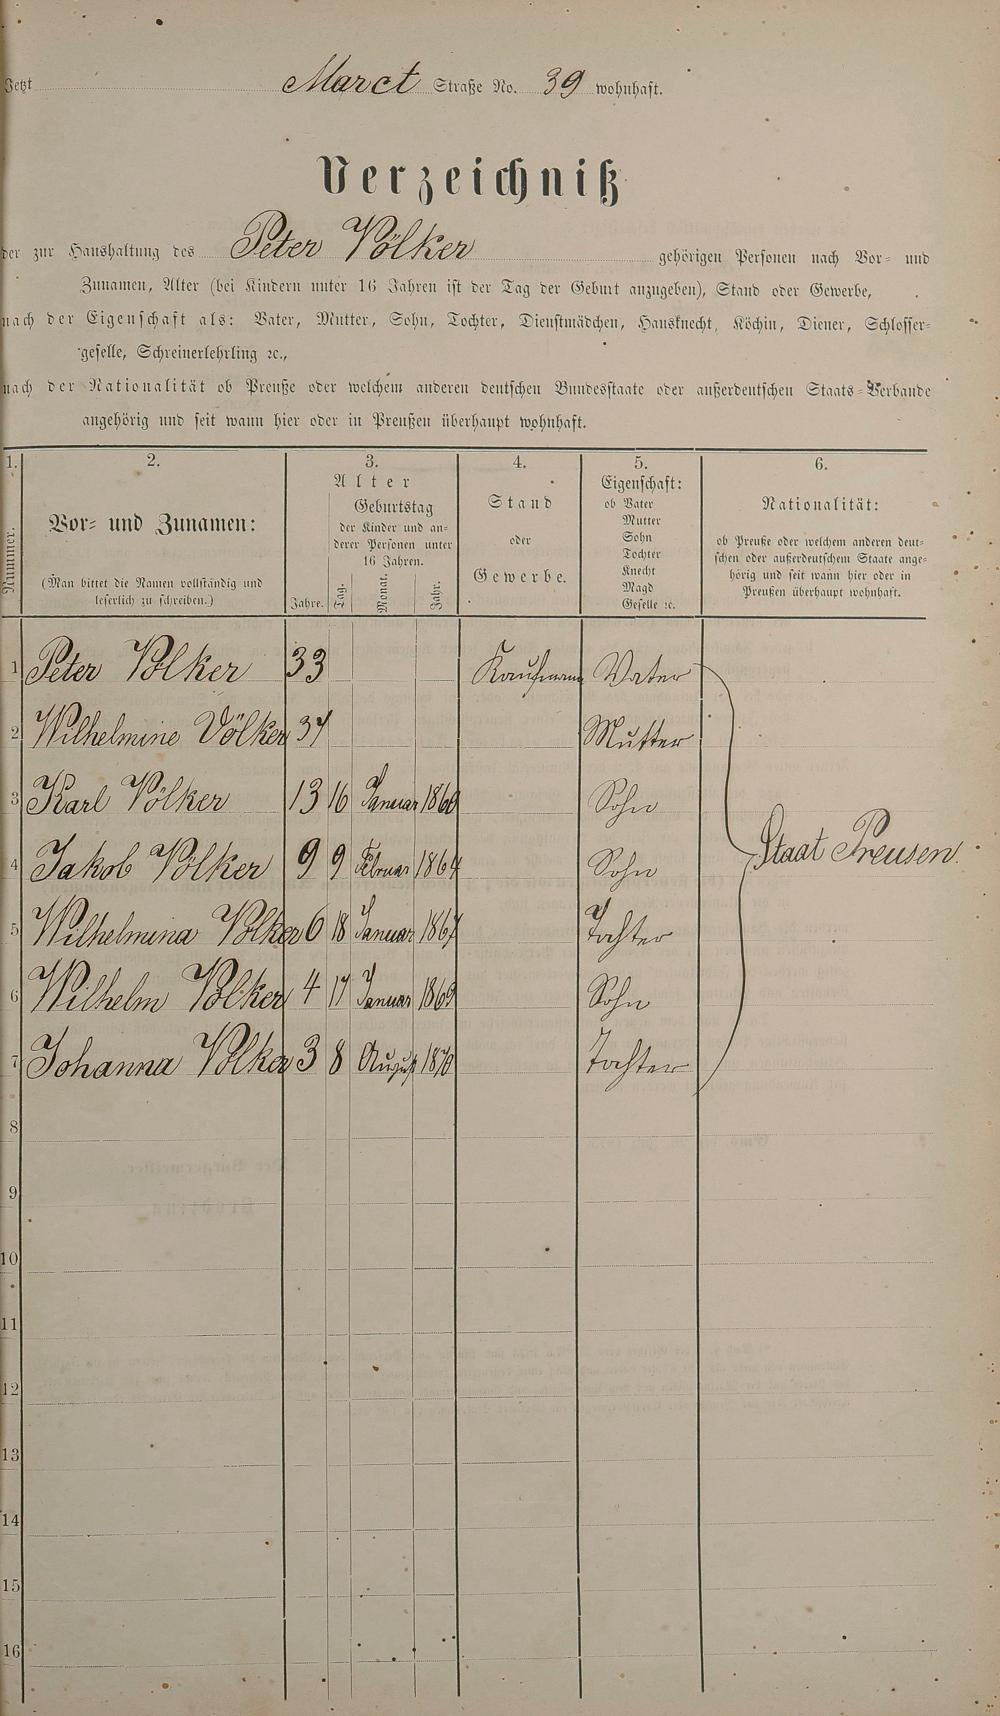 Jetzt Marct Straße No. 39 wohnhaft.
Verzeichniß
der zur Haushaltung des Peter Völker gehörigen Personen nach Vor- und
Zunamen, Alter (bei Kindern unter 16 Jahren ist der Tag der Geburt anzugeben), Stand oder Gewerbe,
nach der Eigenschaft als: Vater, Mutter, Sohn, Tochter, Dienstmädchen, Hausknecht, Köchin, Diener, Schlosser-
geselle, Schreinerlehrling ꝛc.,
nach der Nationalität ob Preuße oder welchem anderen deutschen Bundesstaate oder außerdeutschen Staats-Verbande
angehörig und seit wann hier oder in Preußen überhaupt wohnhaft.
1. 2. 3. 4. 5. 6.
Nummer.
Vor- und Zunamen:
(Man bittet die Namen vollständig und
leserlich zu schreiben.)
Alter
Geburtstag
der Kinder und an-
derer Personen unter
16 Jahren.
Jahre. Tag. Monat. Jahr.
Stand
oder
Gewerbe.
Eigenschaft:
ob Vater
Mutter
Sohn
Tochter
Knecht
Magd
Geselle ꝛc.
Nationalität:
ob Preuße oder welchem anderen deut-
schen oder außerdeutschem Staate ange-
hörig und seit wann hier oder in
Preußen überhaupt wohnhaft.
1 Peter Völker 33 Kaufmann Vater
2 Wilhelmine Völker Mutter
3 Karl Völker 13 16 Januar Sohn
Staat Preusen.
4 Jakob Völker 9 9 Februar 1864 Sohn
5 Wilhelmina Völker 6 18 Januar 1867 Tochter
6 Wilhelm Völker 4 17 Januar 1869 Sohn
7 Johanna Völker 3 8 August 1870 Tochter
8
9
10
11
12
13
14
15
16